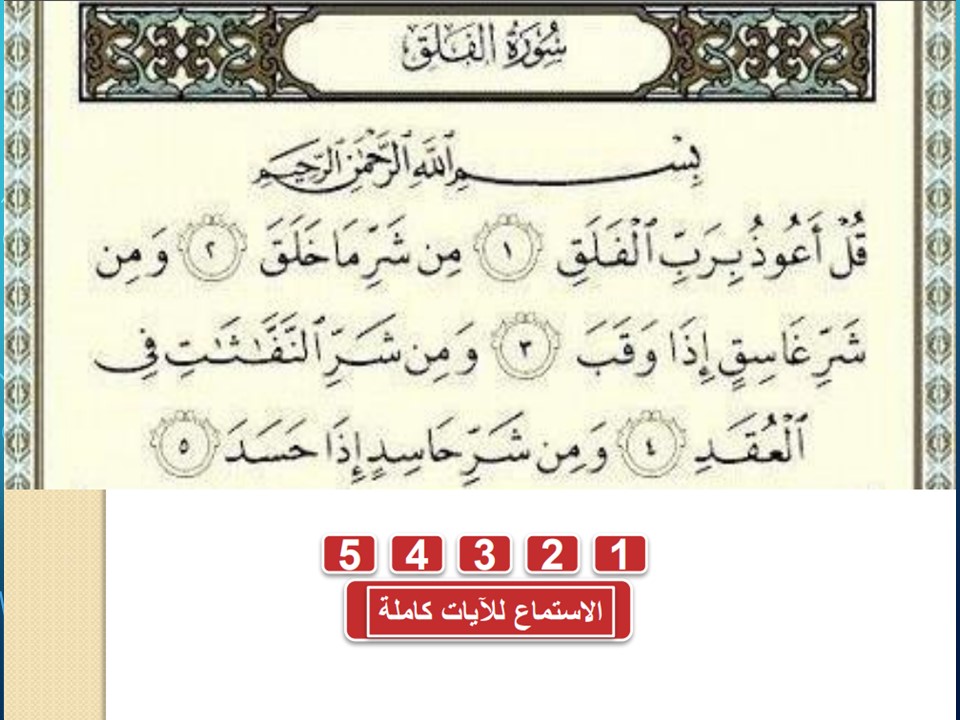 سُورَةُ الفَلَقِ
بِسْمِ ٱللَّهِ ٱلرَّحْمَٰنِ ٱلرَّحِيمِ
قُلْ أَعُوذُ بِرَبِّ ٱلْفَلَقِ ١ مِن شَرِّ مَا خَلَقَ ٢ وَمِن
شَرِّ غَاسِقٍ إِذَا وَقَبَ ٣ وَمِن شَرِّ ٱلنَّفَّٰثَٰتِ فِى
ٱلْعُقَدِ ٤ وَمِن شَرِّ حَاسِدٍ إِذَا حَسَدَ ٥
1 2 3 4 5
الاستماع للآيات كاملة